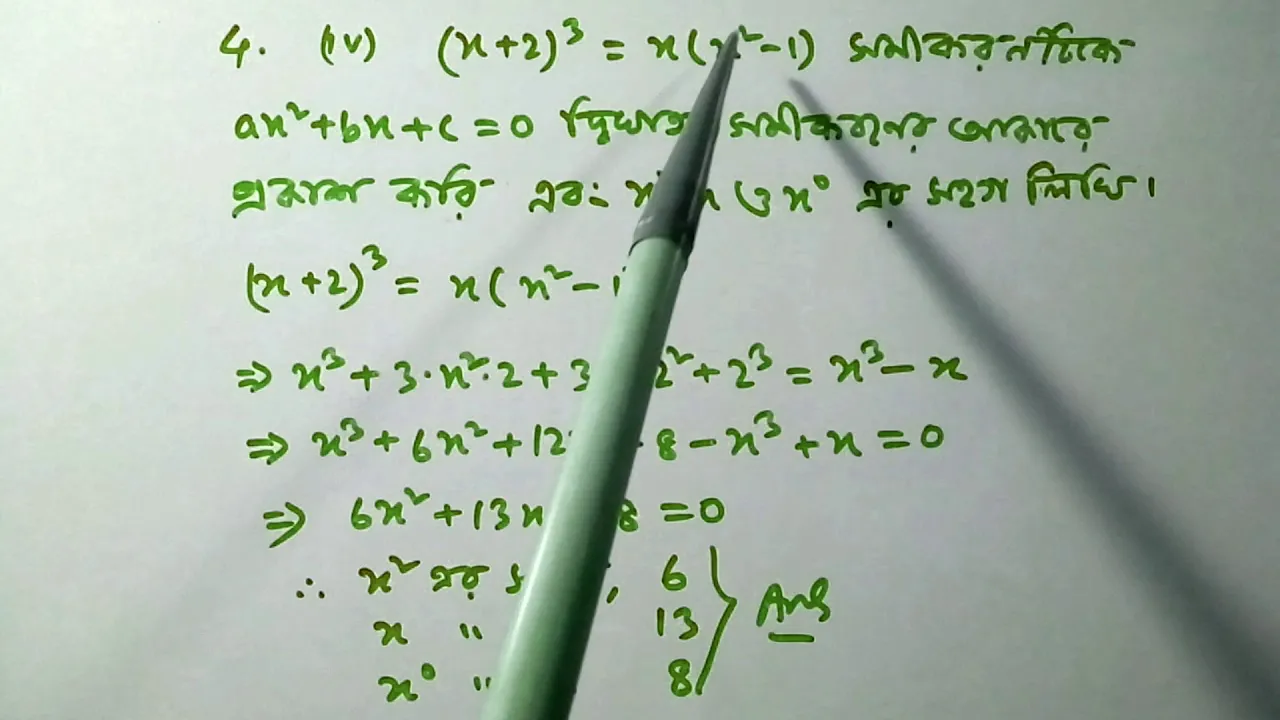 4. (iv) (x+2)³ = x(x²-1) সমীকরণটিকে
ax²+bx+c=0 দ্বিঘাত সমীকরণের আকারে
প্রকাশ করি এবং x ও x⁰ এর সহগ লিখি।
(x+2)³ = x(x²-1
⇒ x³+3·x²·2+3 2²+2³ = x³-x
⇒ x³+6x²+12 8-x³+x=0
⇒ 6x²+13x 8=0
∴ x² এর , 6
x " 13 Ans
x⁰ " 8